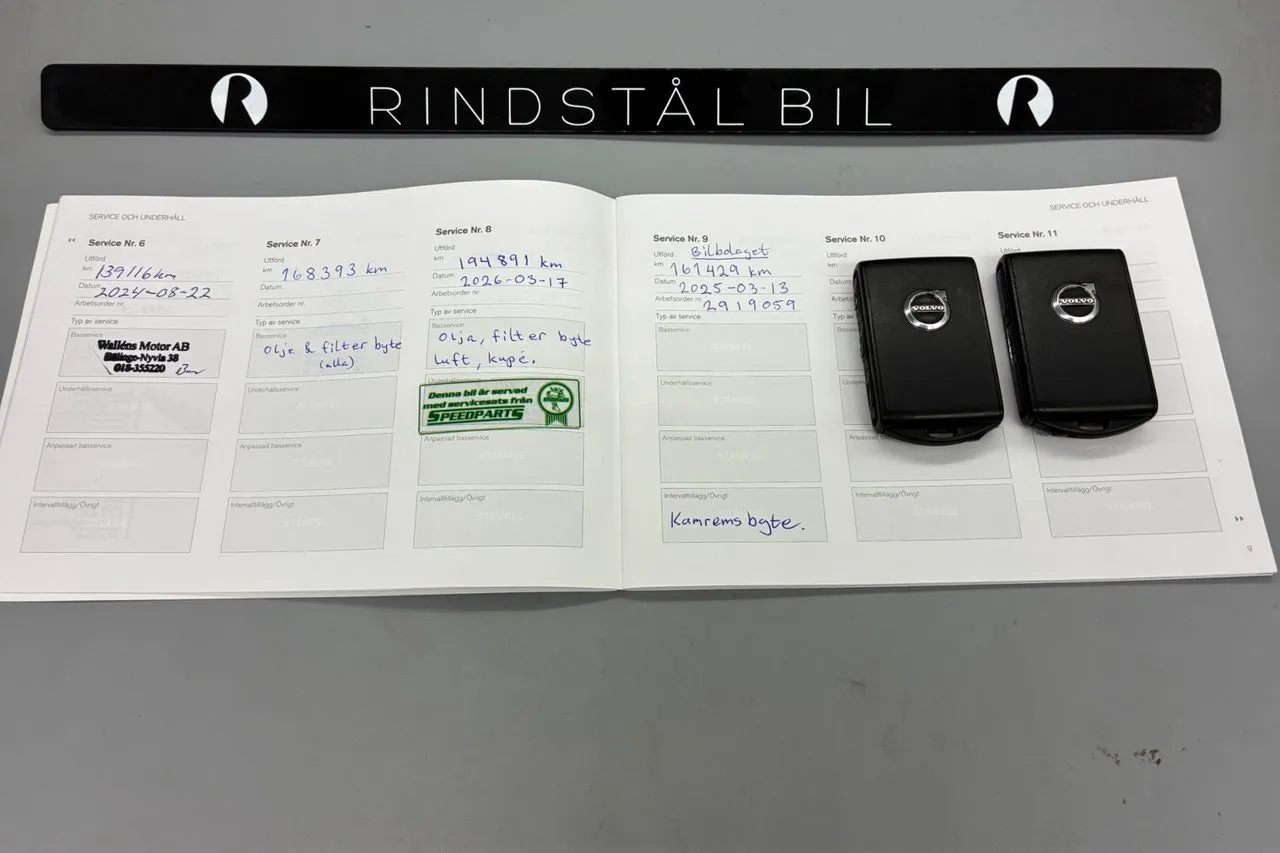 RINDSTÅL BIL
SERVICE OCH UNDERHÅLL
Service Nr. 6
Utförd
km 139116 km
Datum 2024-08-22
Arbetsorder nr.
Typ av service
Basservice
Walléns Motor AB
Bälinge-Nyvla 38
018-355220
Underhållsservice
Anpassad basservice
Intervalltillägg/Övrigt
Service Nr. 7
Utförd
km 168393 km
Datum
Arbetsorder nr.
Typ av service
Basservice
Olje & filter byte
(alla)
Underhållsservice
STÄMPEL
Anpassad basservice
STÄMPEL
Intervalltillägg/Övrigt
STÄMPEL
Service Nr. 8
Utförd
km 194 891 km
Datum 2026-03-17
Arbetsorder nr.
Typ av service
Basservice
Olja, filter byte
luft, kupé.
Denna bil är servad
med servicesats från
SPEEDPARTS
Anpassad basservice
STÄMPEL
Intervalltillägg/Övrigt
STÄMPEL
SERVICE OCH UNDERHÅLL
Service Nr. 9
Utförd Bilbolaget
km 161429 km
Datum 2025-03-13
Arbetsorder nr. 2919059
Typ av service
Basservice
STÄMPEL
Underhållsservice
STÄMPEL
Anpassad basservice
STÄMPEL
Intervalltillägg/Övrigt
Kamremsbyte.
Service Nr. 10
Utförd
km
Datum
Typ av service
Intervalltillägg/Övrigt
STÄMPEL
Service Nr. 11
Utförd
Intervalltillägg/Övrigt
STÄMPEL
VOLVO
VOLVO
9